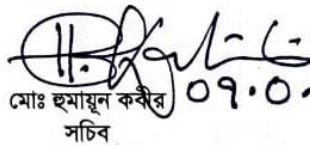 ০৭.০.
মোঃ হুমায়ূন কবীর
সচিব